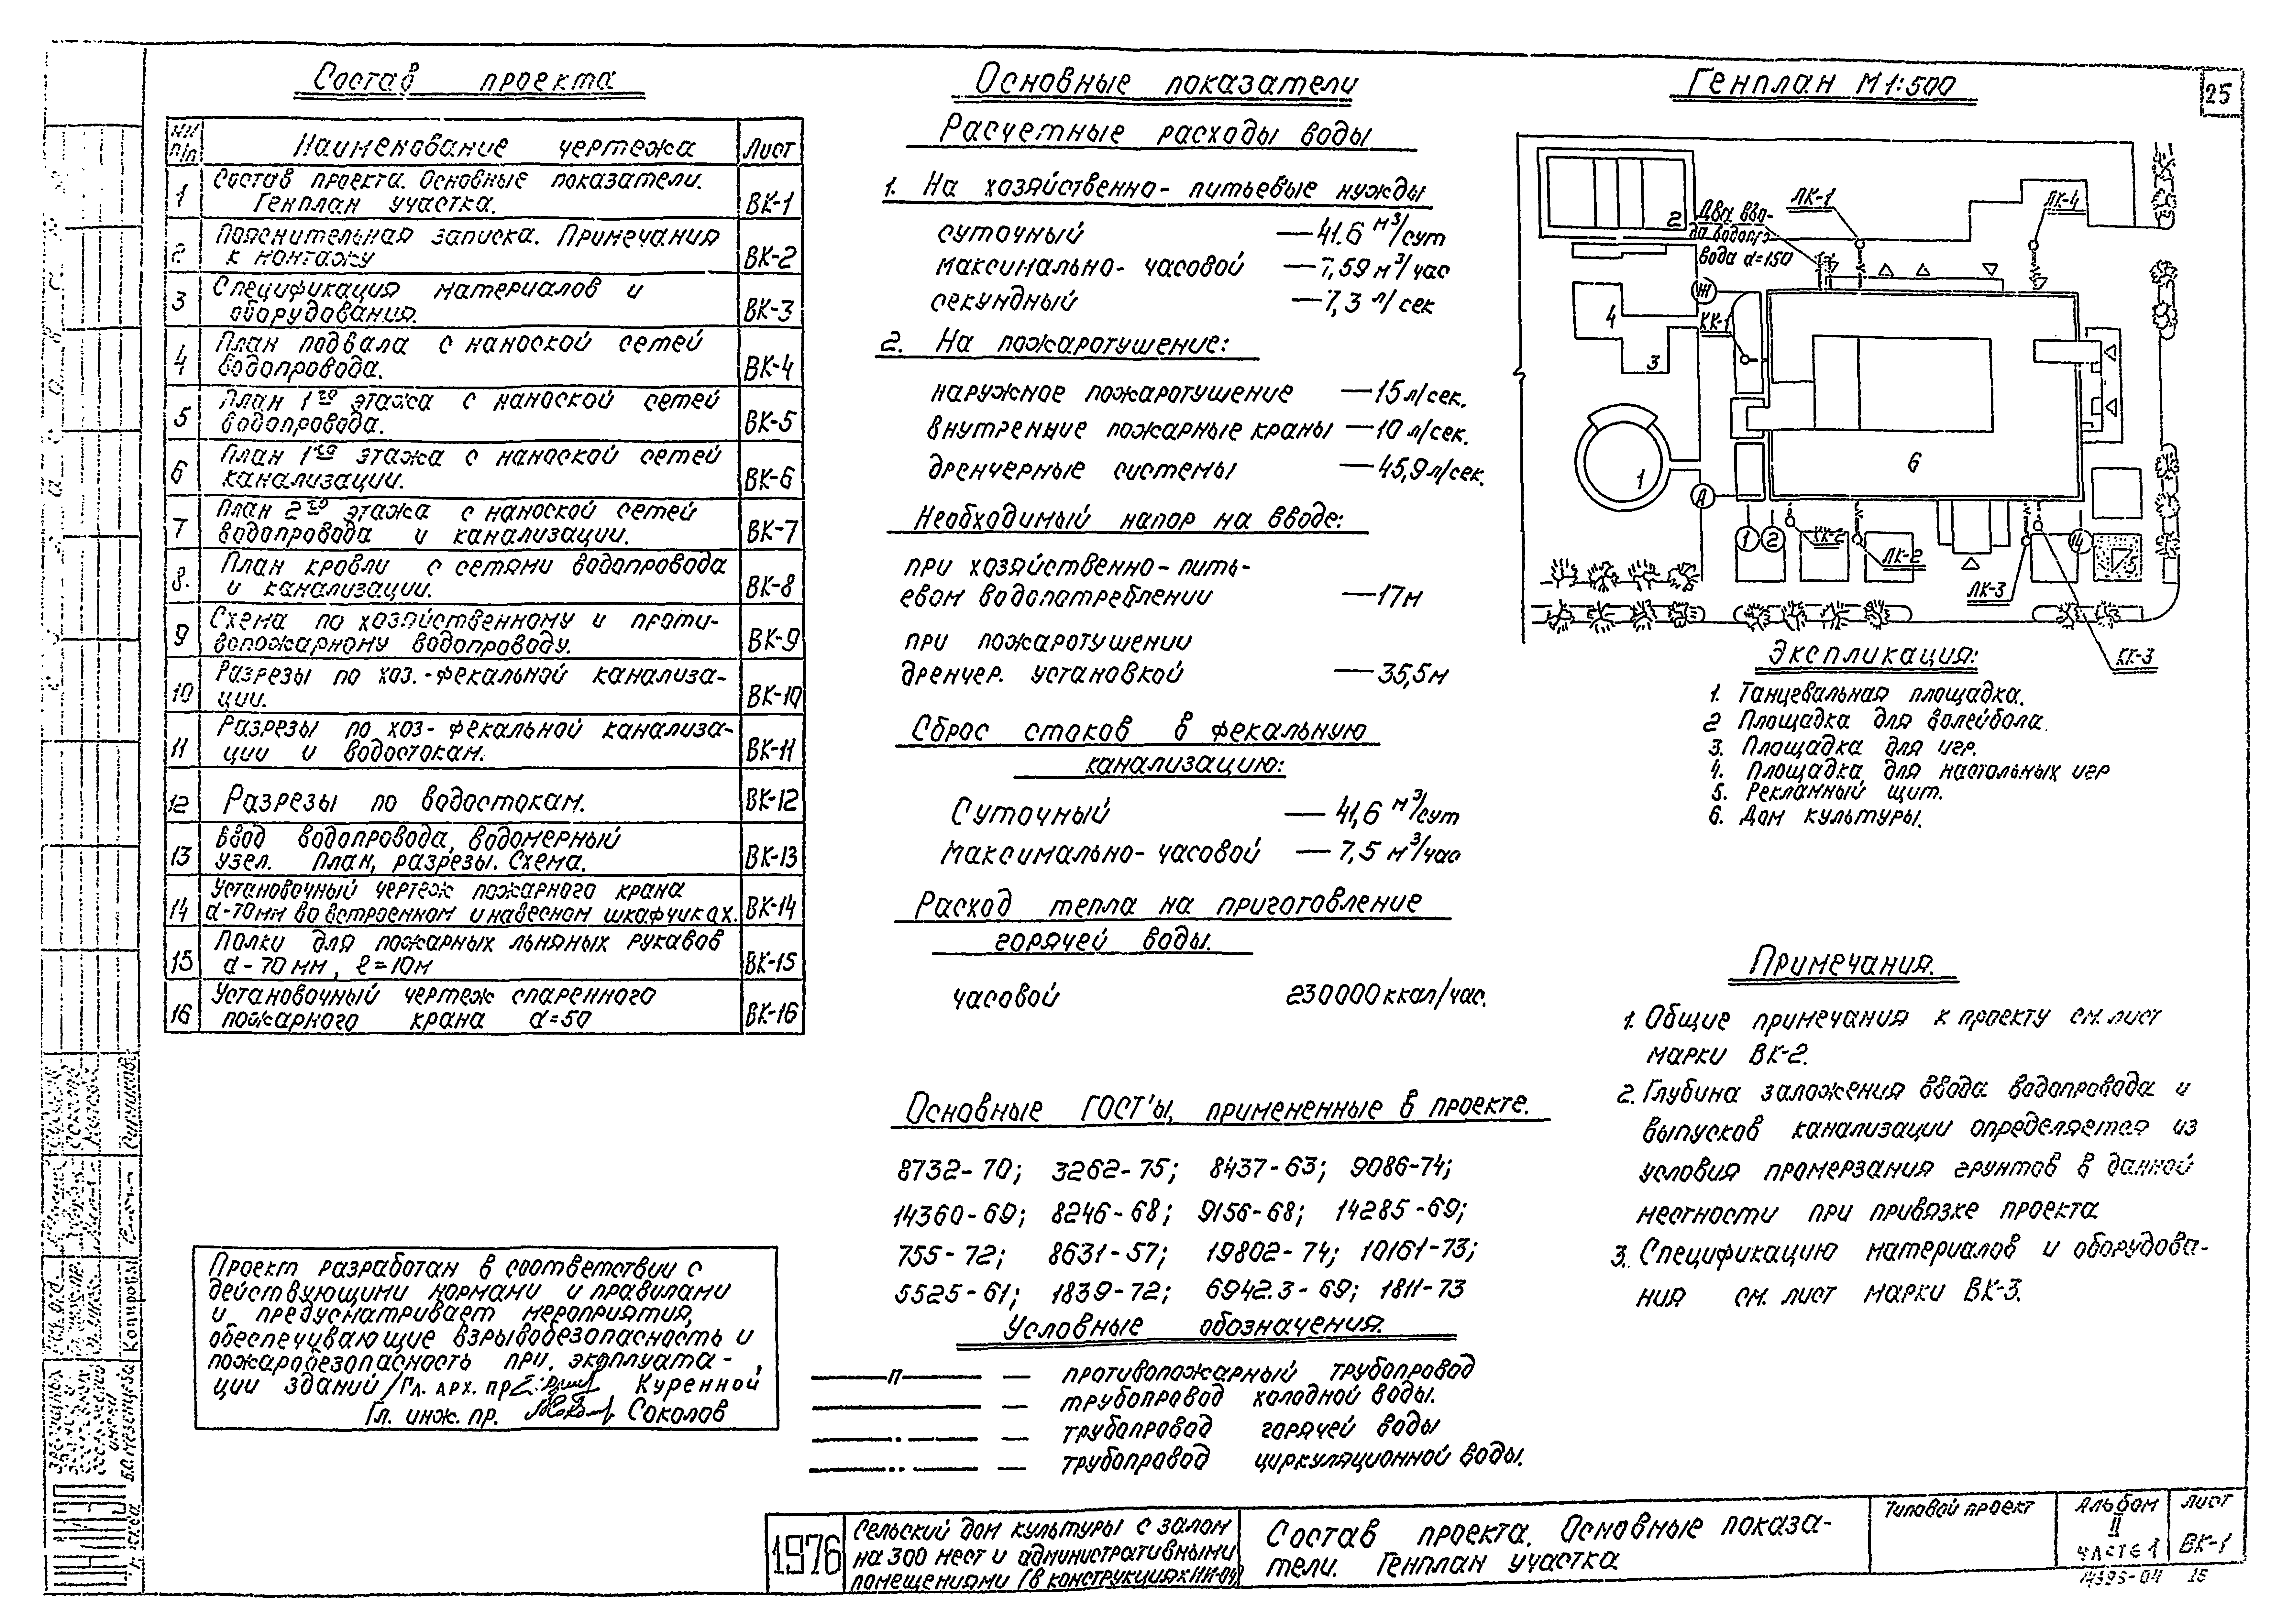 25
Состав проекта
NN п/п
Наименование чертежа
Лист
1
Состав проекта. Основные показатели.
Генплан участка.
ВК-1
2
Пояснительная записка. Примечания
к монтажу
ВК-2
3
Спецификация материалов и
оборудования.
ВК-3
4
План подвала с наноской сетей
водопровода.
ВК-4
5
План 1го этажа с наноской сетей
водопровода.
ВК-5
6
План 1го этажа с наноской сетей
канализации.
ВК-6
7
План 2го этажа с наноской сетей
водопровода и канализации.
ВК-7
8.
План кровли с сетями водопровода
и канализации.
ВК-8
9
Схема по хозяйственному и проти-
вопожарному водопроводу.
ВК-9
10
Разрезы по хоз.-фекальной канализа-
ции.
ВК-10
11
Разрезы по хоз-фекальной канализа-
ции и водостокам.
ВК-11
12
Разрезы по водостокам.
ВК-12
13
Ввод водопровода, водомерный
узел. План, разрезы. Схема.
ВК-13
14
Установочный чертеж пожарного крана
d-70мм во встроенном и навесном шкафчиках.
ВК-14
15
Полки для пожарных льняных рукавов
d-70мм, ℓ=10м
ВК-15
16
Установочный чертеж спаренного
пожарного крана d=50
ВК-16
Проект разработан в соответствии с
действующими нормами и правилами
и предусматривает мероприятия,
обеспечивающие взрывобезопасность и
пожаробезопасность при эксплуата-
ции зданий /Гл. арх. пр. Куренной
Гл. инж. пр. Соколов
Основные показатели
Расчетные расходы воды
1. На хозяйственно-питьевые нужды
суточный — 41.6 м³/сут
максимально-часовой — 7,59 м³/час
секундный — 7,3 л/сек
2. На пожаротушение:
наружное пожаротушение — 15 л/сек.
внутренние пожарные краны — 10 л/сек.
дренчерные системы — 45,9 л/сек.
Необходимый напор на вводе:
при хозяйственно-пить-
евом водопотреблении — 17м
при пожаротушении
дренчер. установкой — 35,5м
Сброс стоков в фекальную
канализацию:
Суточный — 41,6 м³/сут
Максимально-часовой — 7,5 м³/час
Расход тепла на приготовление
горячей воды.
часовой 230000 ккал/час.
Основные ГОСТ'ы, примененные в проекте.
8732-70; 3262-75; 8437-63; 9086-74;
14360-69; 8246-68; 9156-68; 14285-69;
755-72; 8631-57; 19802-74; 10161-73;
5525-61; 1839-72; 6942.3-69; 1811-73
Условные обозначения.
—п— — противопожарный трубопровод
— трубопровод холодной воды.
— трубопровод горячей воды
— трубопровод циркуляционной воды.
Генплан М 1:500
2
Два вво-
да водопро-
вода d=150
ЛК-1
ЛК-4
Ж
КК-1
4
3
1
А
6
1
2
КК-2
ЛК-2
ЛК-3
14
5
КК-3
Экспликация:
1. Танцевальная площадка.
2 Площадка для волейбола.
3. Площадка для игр.
4. Площадка для настольных игр
5. Рекламный щит.
6. Дом культуры.
Примечания.
1. Общие примечания к проекту см. лист
марки ВК-2.
2. Глубина заложения ввода водопровода и
выпусков канализации определяется из
условия промерзания грунтов в данной
местности при привязке проекта
3. Спецификацию материалов и оборудова-
ния см. лист марки ВК-3.
Копировал
1976
Сельский дом культуры с залом
на 300 мест и административными
помещениями (в конструкциях ИИ-04)
Состав проекта. Основные показа-
тели. Генплан участка
Типовой проект
Альбом
II
часть 1
Лист
ВК-1
14395-04 15